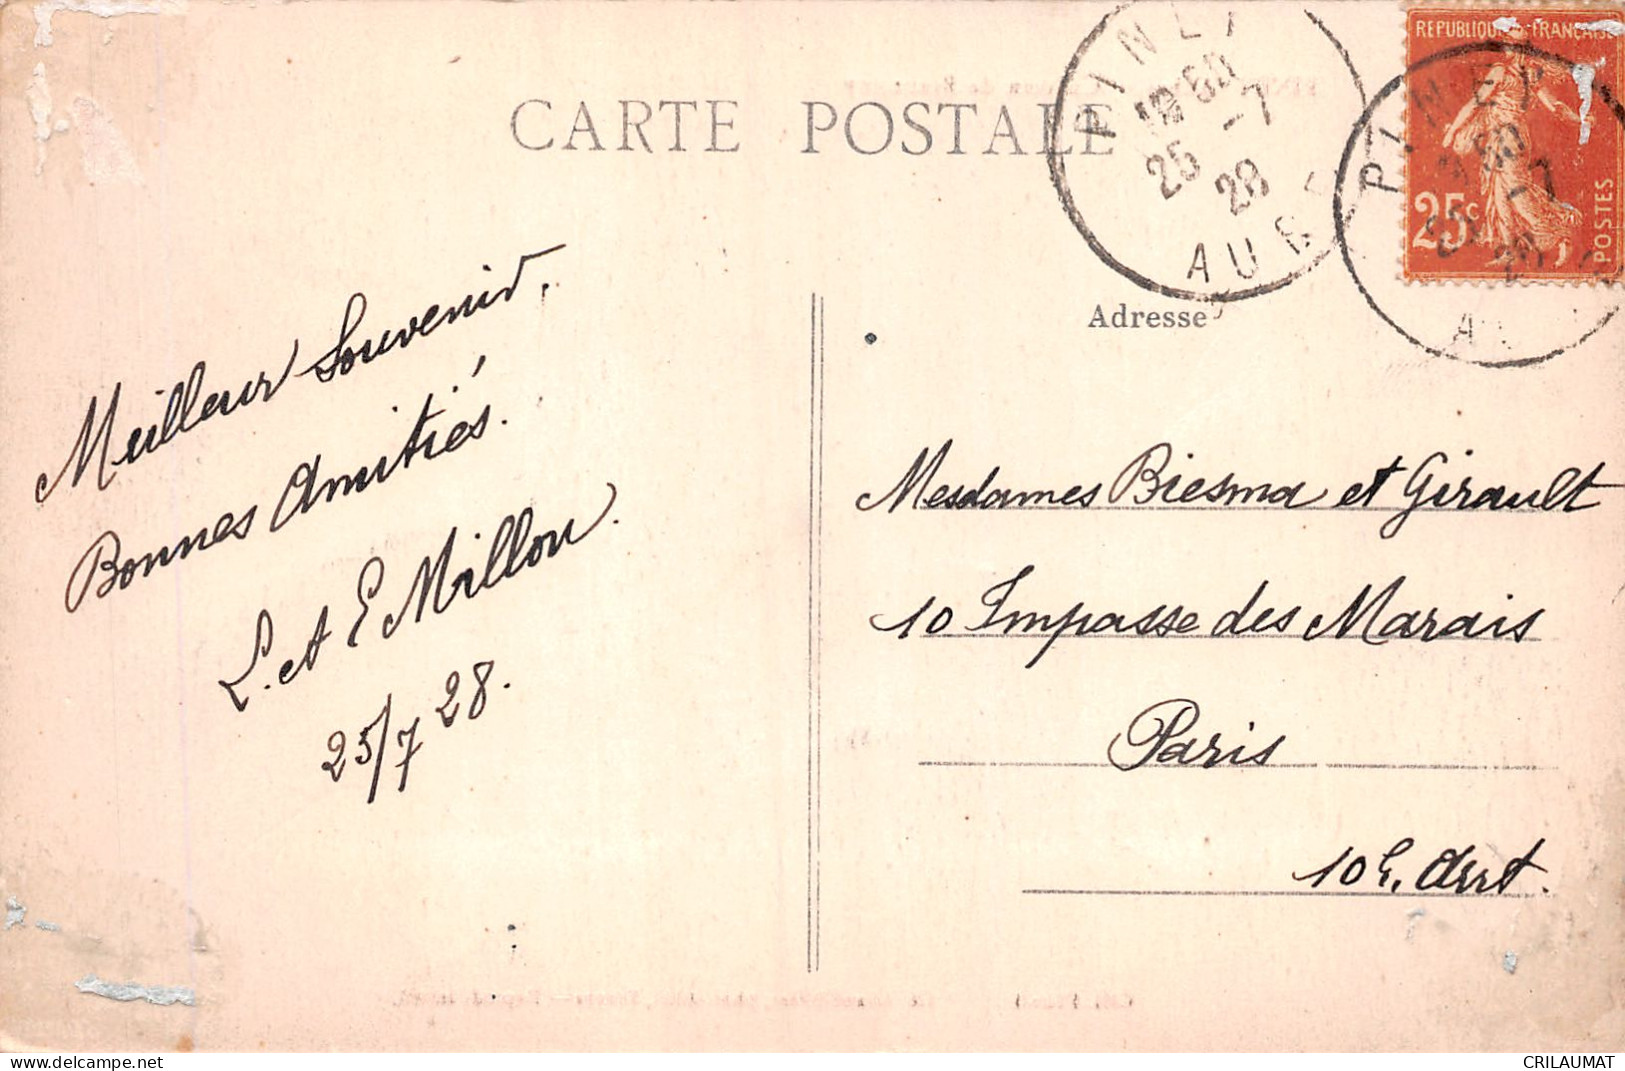 CARTE POSTALE
PINEY
25 -7
28
AUBE
REPUBLIQUE FRANÇAISE
25c
POSTES
PINEY
Adresse
Meilleur Souvenir.
Bonnes Amitiés.
L. et E Millon.
25/7 28.
Mesdames Biesma et Girault
10 Impasse des Marais
Paris
10e. Arrt.
CRILAUMAT